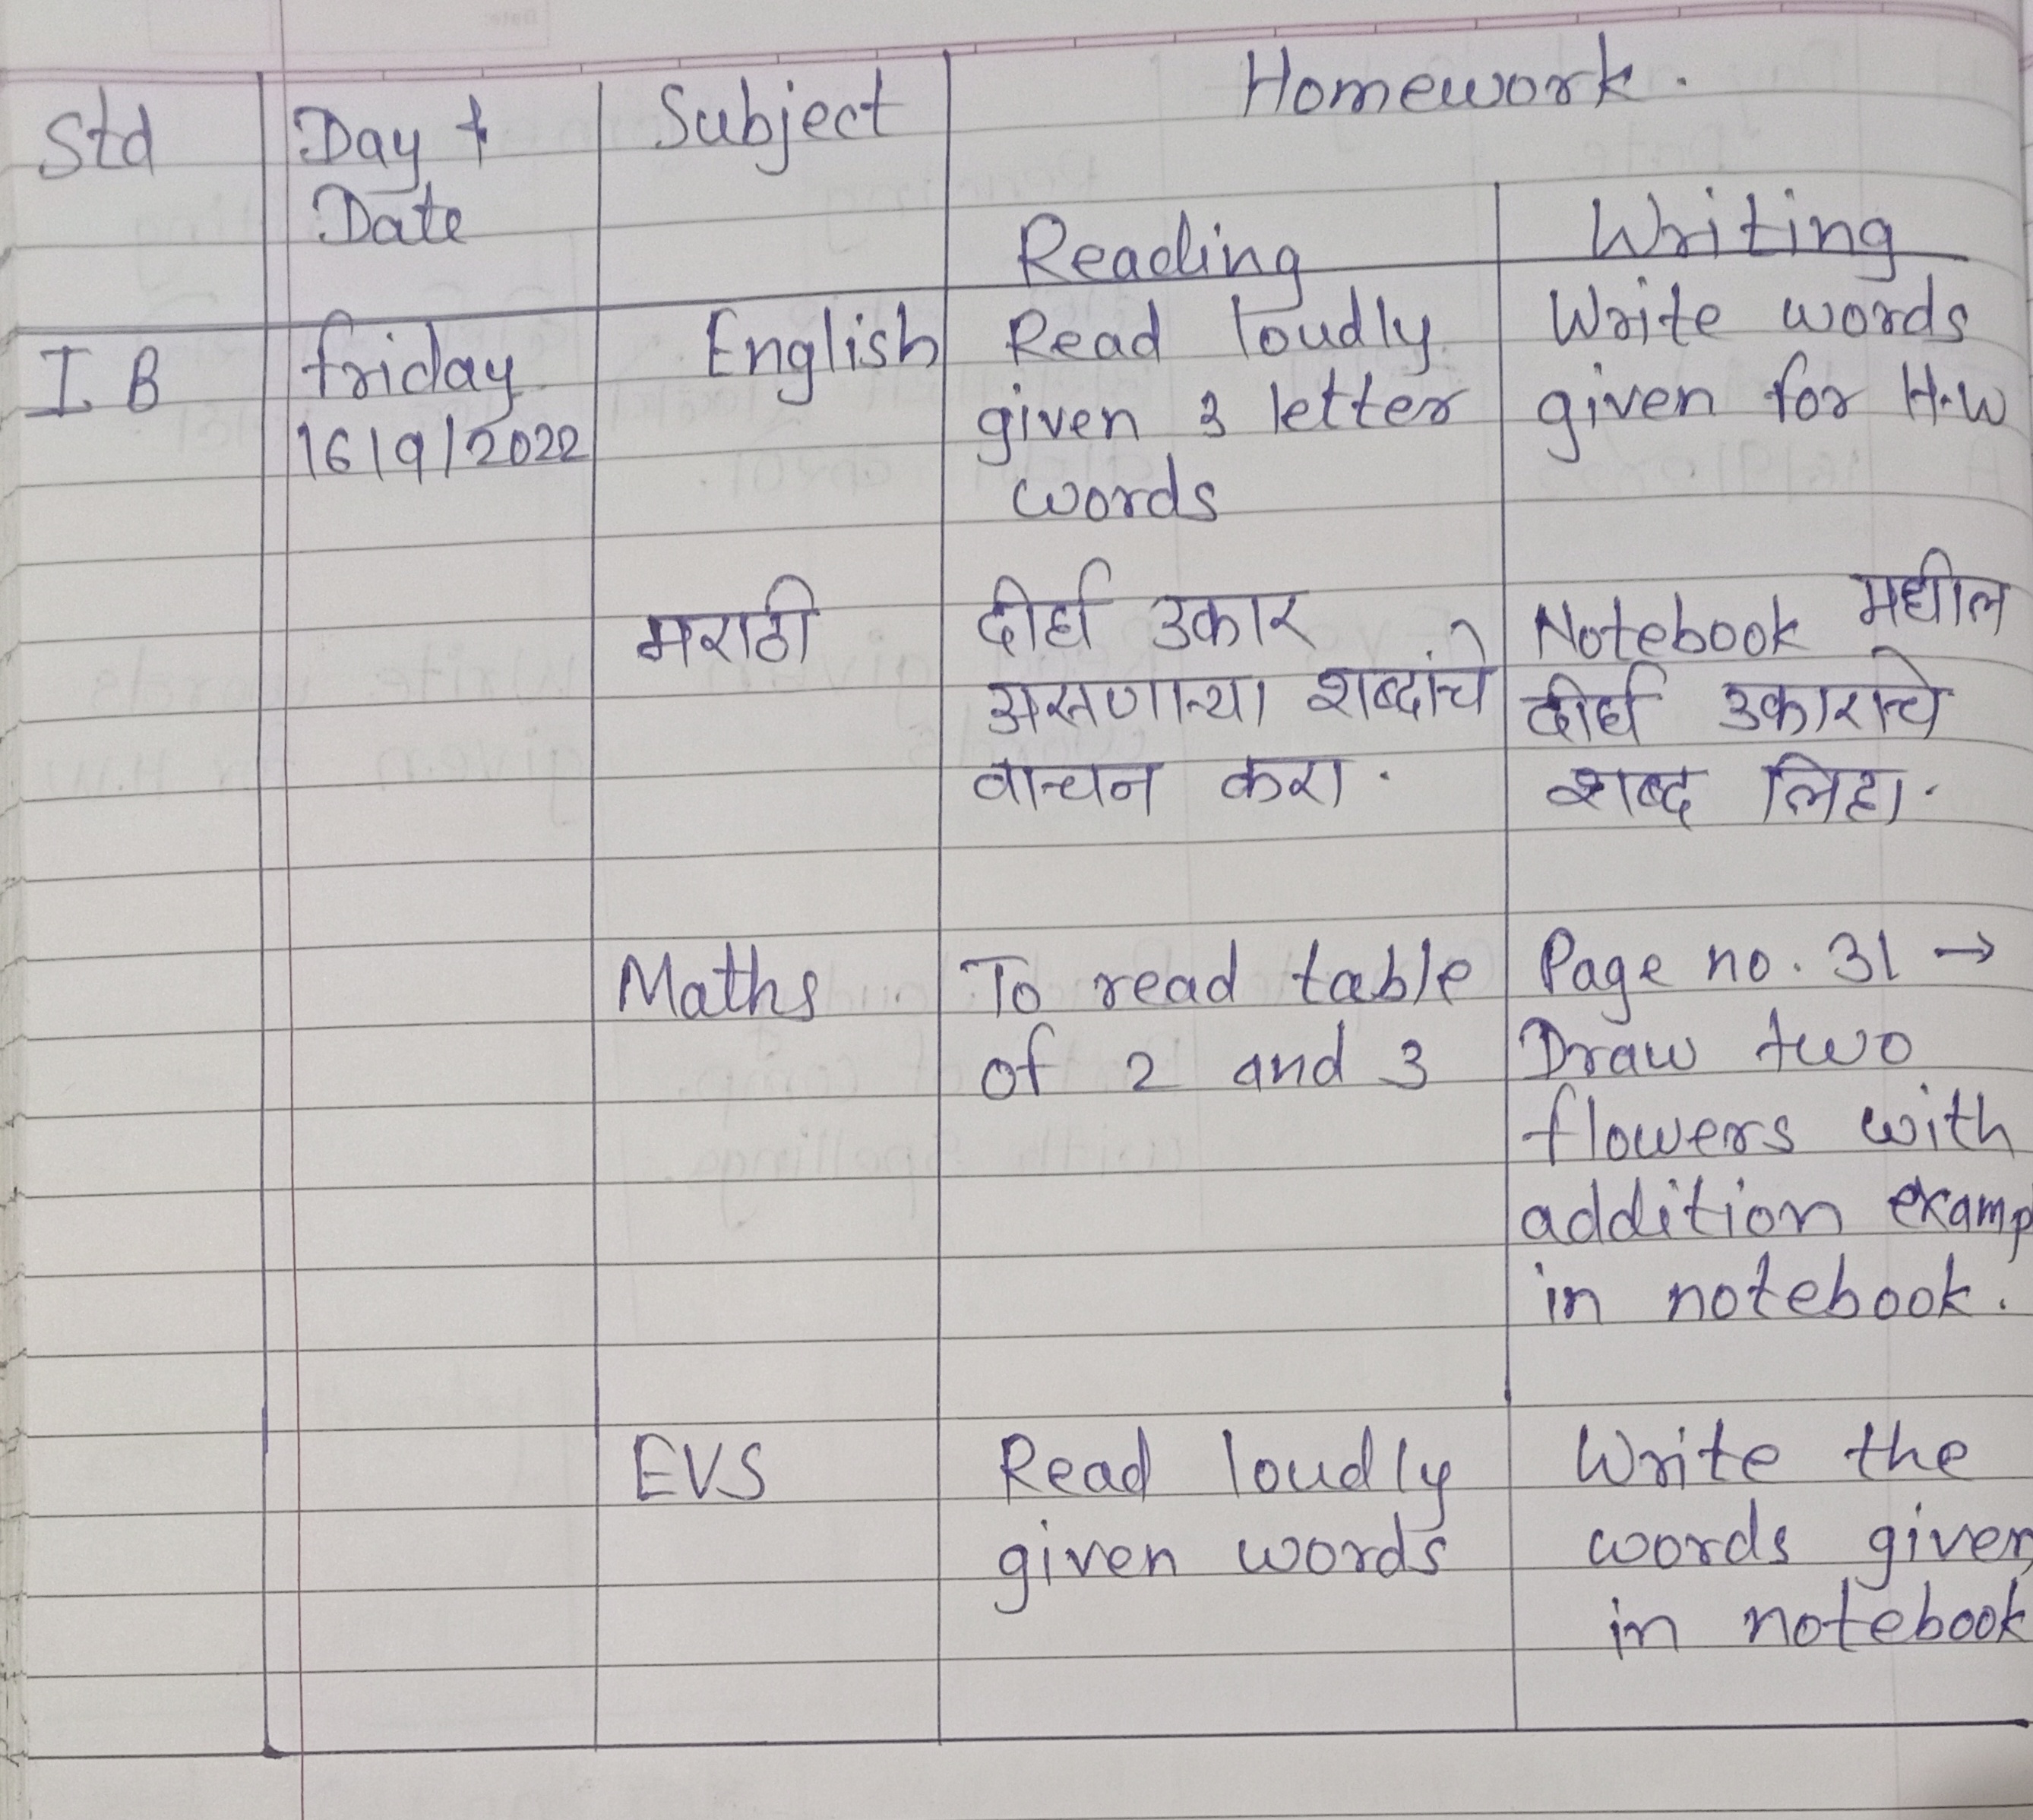 Std
Day &
Date
Subject
Homework.
Reading
Writing
I B
friday
16/9/2022
English
Read loudly
given 3 letter
words
Write words
given for H.W
मराठी
दीर्घ उकार
असणाऱ्या शब्दांचे
वाचन करा.
Notebook मधील
दीर्घ उकाराचे
शब्द लिहा.
Maths
To read table
of 2 and 3
Page no. 31 →
Draw two
flowers with
addition examp
in notebook.
EVS
Read loudly
given words
Write the
words given
in notebook